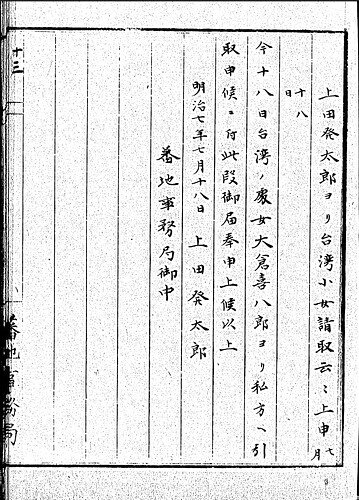 上田発太郎ヨリ台湾小女請取云々上申 七月
十八日
今十八日台湾ノ處女大倉喜八郎ヨリ私方ヘ引
取申候ニ付此段御届奉申上候以上
明治七年七月十八日 上田発太郎
蕃地事務局御中
十三
蕃地事務局